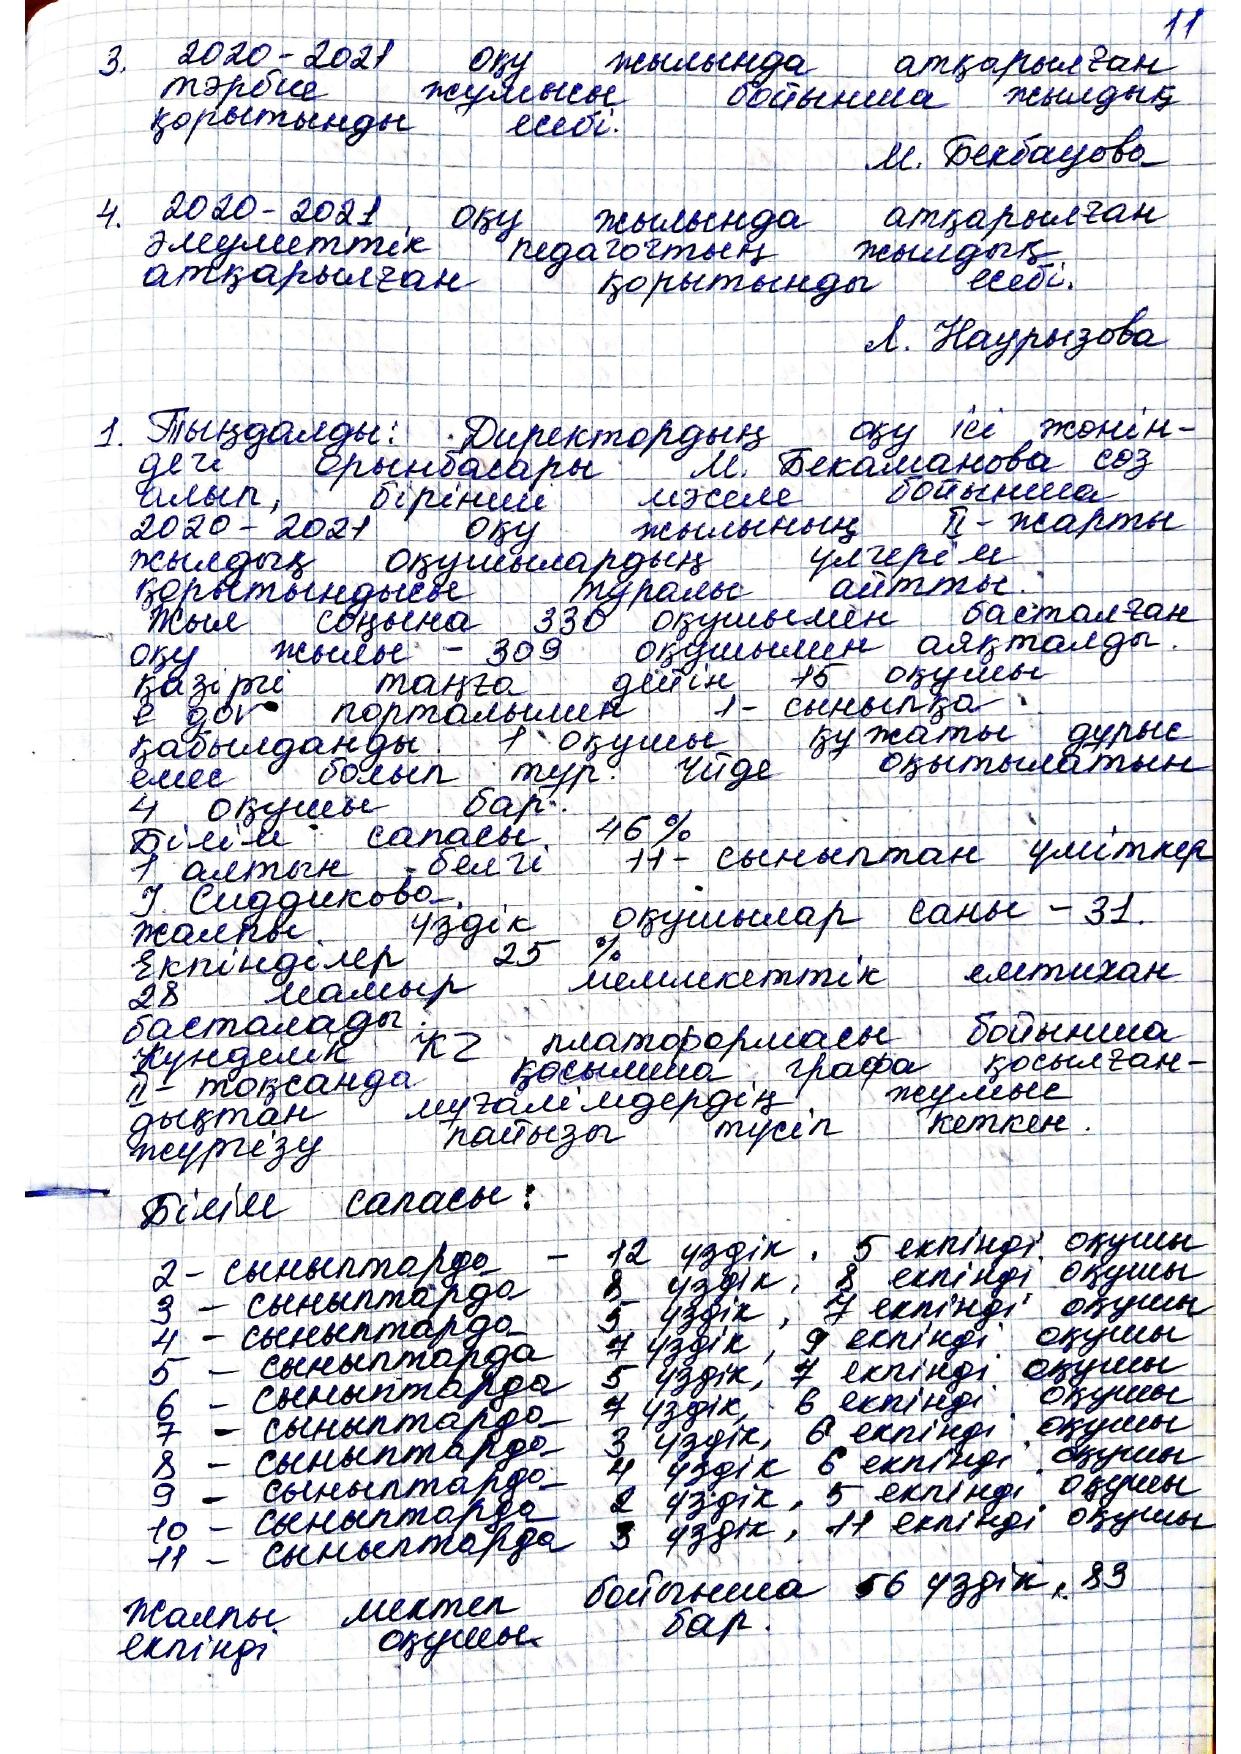 11
3. 2020-2021 оқу жылында атқарылған
тәрбие жұмысы бойынша жылдық
қорытынды есебі.
М. Бекбауова
4. 2020-2021 оқу жылында атқарылған
әлеуметтік педагогтың жылдық
атқарылған қорытынды есебі.
Л. Наурызова
1. Тыңдалды: Директордың оқу ісі жөнін-
дегі орынбасары М. Бекаманова сөз
алып, бірінші мәселе бойынша
2020-2021 оқу жылының II-жарты
жылдық оқушылардың үлгерім
қорытындысы туралы айтты.
Жыл соңына 330 оқушымен басталған
оқу жылы - 309 оқушымен аяқталды.
қазіргі таңға дейін 15 оқушы
e gov порталымен 1-сыныпқа
қабылданды. 1 оқушы құжаты дұрыс
емес болып тұр. Үйде оқытылатын
4 оқушы бар.
Білім сапасы 46%
1 алтын белгі 11-сыныптан үміткер
I. Сиддикова.
Жалпы үздік оқушылар саны - 31.
Екпінділер 25 %
28 мамыр мемлекеттік емтихан
басталады.
Күнделік KZ платформасы бойынша
II-тоқсанда қосымша графа қосылған-
дықтан мұғалімдердің жұмыс
жүргізу пайызы түсіп кеткен.
Білім сапасы:
2-сыныптарда - 12 үздік, 5 екпінді оқушы
3 - сыныптарда 8 үздік, 8 екпінді оқушы
4 - сыныптарда 5 үздік, 7 екпінді оқушы
5 - сыныптарда 7 үздік, 9 екпінді оқушы
6 - сыныптарда 5 үздік, 7 екпінді оқушы
7 - сыныптарда 7 үздік, 6 екпінді оқушы
8 - сыныптарда 3 үздік, 6 екпінді оқушы
9 - сыныптарда 4 үздік 6 екпінді оқушы
10 - сыныптарда 2 үздік, 5 екпінді оқушы
11 - сыныптарда 3 үздік, 11 екпінді оқушы
Жалпы мектеп бойынша 56 үздік, 83
екпінді оқушы бар.